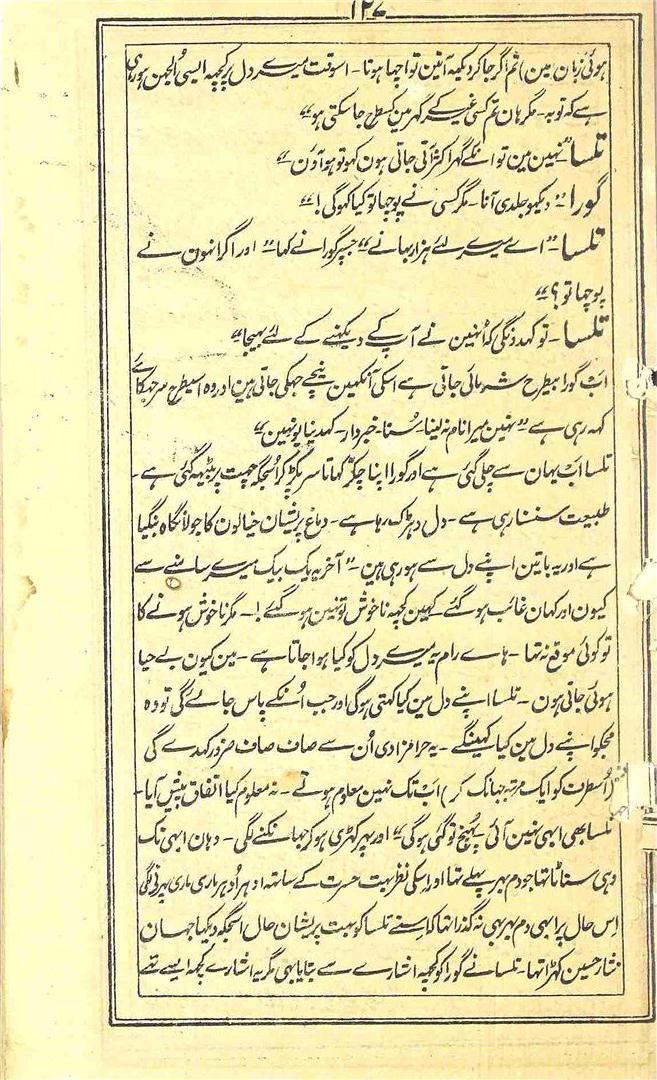 ۱۲۷
ہوئی زبان مین) تم اگر جا کر دیکھہ آتین تو اچھا ہوتا۔ اسوقت میرے دل پر کچھہ ایسی اُلجھن ہو رہی
ہے کہ توبہ۔ مگر ہان تم کسی غیر کے گھر مین کسطرح جا سکتی ہو“
تلسا ”نہین مین تو انکے گھر اکثر آتی جاتی ہون کہو تو ہو آؤن“
گورا ”دیکھو جلدی آنا۔ مگر کسی نے پوچھا تو کیا کہو گی!“
تلسا ”اے میرے لئے ہزار بہانے“ جسپر گورا نے کہا ”اور اگر انہون نے
پوچھا تو؟“
تلسا۔ تو کہدونگی کہ اُنہین نے آپ کے دیکھنے کے لئے بھیجا“
اب گورا بیطرح شرمائی جاتی ہے اسکی آنکھین نیچے جھکی جاتی ہین اور وہ اسیطرح سر جھکائے
کہہ رہی ہے ”نہین میرا نام نہ لینا۔ سُنا۔ خبردار۔ کہدینا یونہین“
تلسا اب یہان سے چلی گئی ہے اور گورا اپنا چکر کھاتا سر پکڑ کر اُسجگہ چھت پر بیٹھہ گئی ہے۔
طبیعت سنسنا رہی ہے۔ دل دھڑک رہا ہے۔ دماغ پریشان خیالون کا جولانگاہ بنگیا
ہے اور یہ باتین اپنے دل سے ہو رہی ہین۔ ”آخر یہ یک بیک میرے سامنے سے
کیون اور کہان غائب ہو گئے۔ کہین کچھہ ناخوش تو نہین ہو گئے!۔ مگر ناخوش ہونے کا
تو کوئی موقع نہ تھا۔ ہاے رام یہ میرے دل کو کیا ہوا جاتا ہے۔ مین کیون بے حیا
ہوئی جاتی ہون۔ تلسا اپنے دل مین کیا کہتی ہو گی اور جب اُنکے پاس جائے گی تو وہ
مجکو اپنے دل مین کیا کہینگے۔ یہ حرامزادی اُن سے صاف صاف ضرور کہدے گی
(اُسطرف کو ایک مرتبہ جھانک کر) اب تک نہین معلوم ہوتے۔ نہ معلوم کیا اتفاق پیش آیا۔
تلسا بھی ابھی نہین آئی پہُنچ تو گئی ہو گی“ اور پھر کھڑی ہو کر جھانکنے لگی۔ وہان ابھی تک
وہی سناٹا تھا جو دم بھر پہلے تھا اور اسکی نظر بہت حسرت کے ساتھہ ادھر اُدھر ماری ماری پھرنے لگی
اس حال پر ابھی دم بھر بھی نہ گذرا تھا کہ اِسنے تلسا کو بہت پریشان حال اسجگہ دیکھا جہان
نثار حسین کھڑا تھا۔ تلسا نے گورا کو کچھہ اشارے سے بتایا بھی مگر یہ اشارے کچھہ ایسے تھے